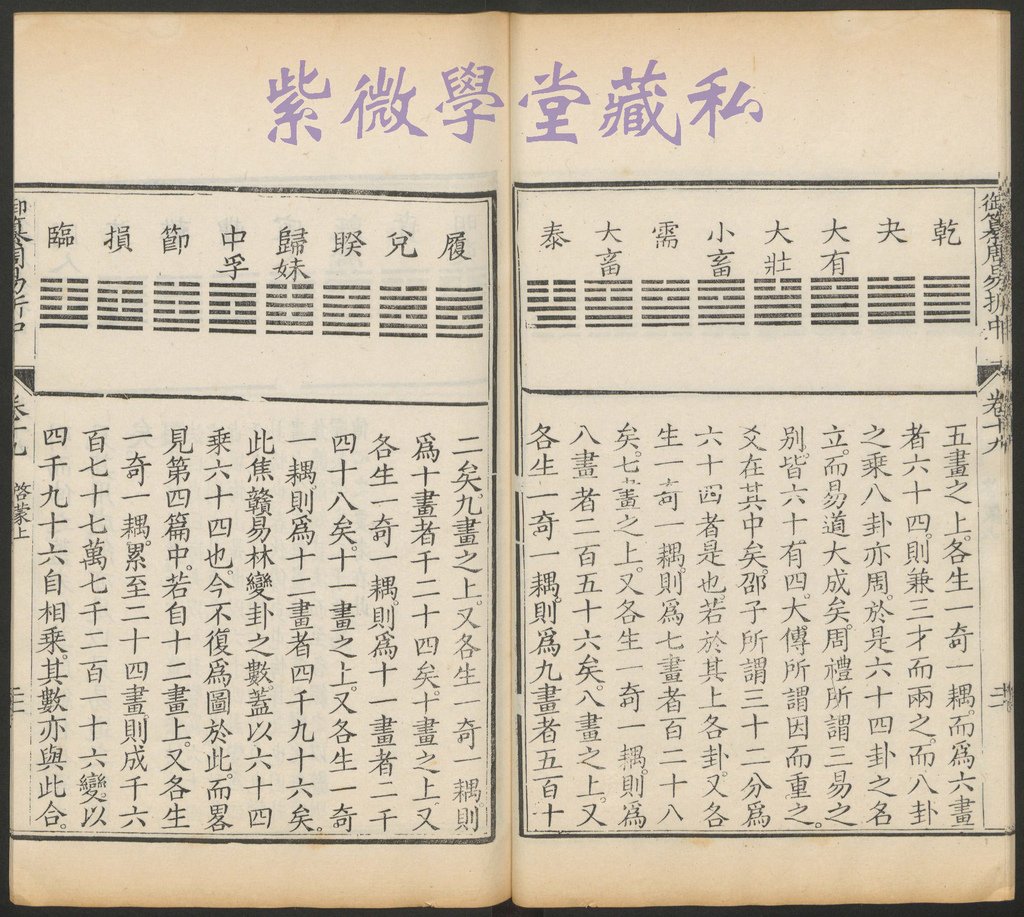 紫微學堂藏私
御纂周易折中
卷十九
乾
夬
大有
大壯
小畜
需
大畜
泰
五畫之上。各生一奇一耦。而爲六畫
者六十四。則兼三才而兩之。而八卦
之乘八卦亦周。於是六十四卦之名
立。而易道大成矣。周禮所謂三易之
別。皆六十有四。大傳所謂因而重之。
爻在其中矣。邵子所謂三十二分爲
六十四者是也。若於其上各卦。又各
生一奇一耦。則爲七畫者百二十八
矣。七畫之上。又各生一奇一耦。則爲
八畫者二百五十六矣。八畫之上。又
各生一奇一耦。則爲九畫者五百十
履
兌
睽
歸妹
中孚
節
損
臨
二矣。九畫之上。又各生一奇一耦則
爲十畫者千二十四矣。十畫之上。又
各生一奇一耦。則爲十一畫者二千
四十八矣。十一畫之上。又各生一奇
一耦。則爲十二畫者四千九十六矣。
此焦贛易林變卦之數。蓋以六十四
乘六十四也。今不復爲圖於此。而畧
見第四篇中。若自十二畫上。又各生
一奇一耦。累至二十四畫則成千六
百七十七萬七千二百一十六變。以
四千九十六自相乘。其數亦與此合。
御纂周易折中
卷十九
啓蒙上